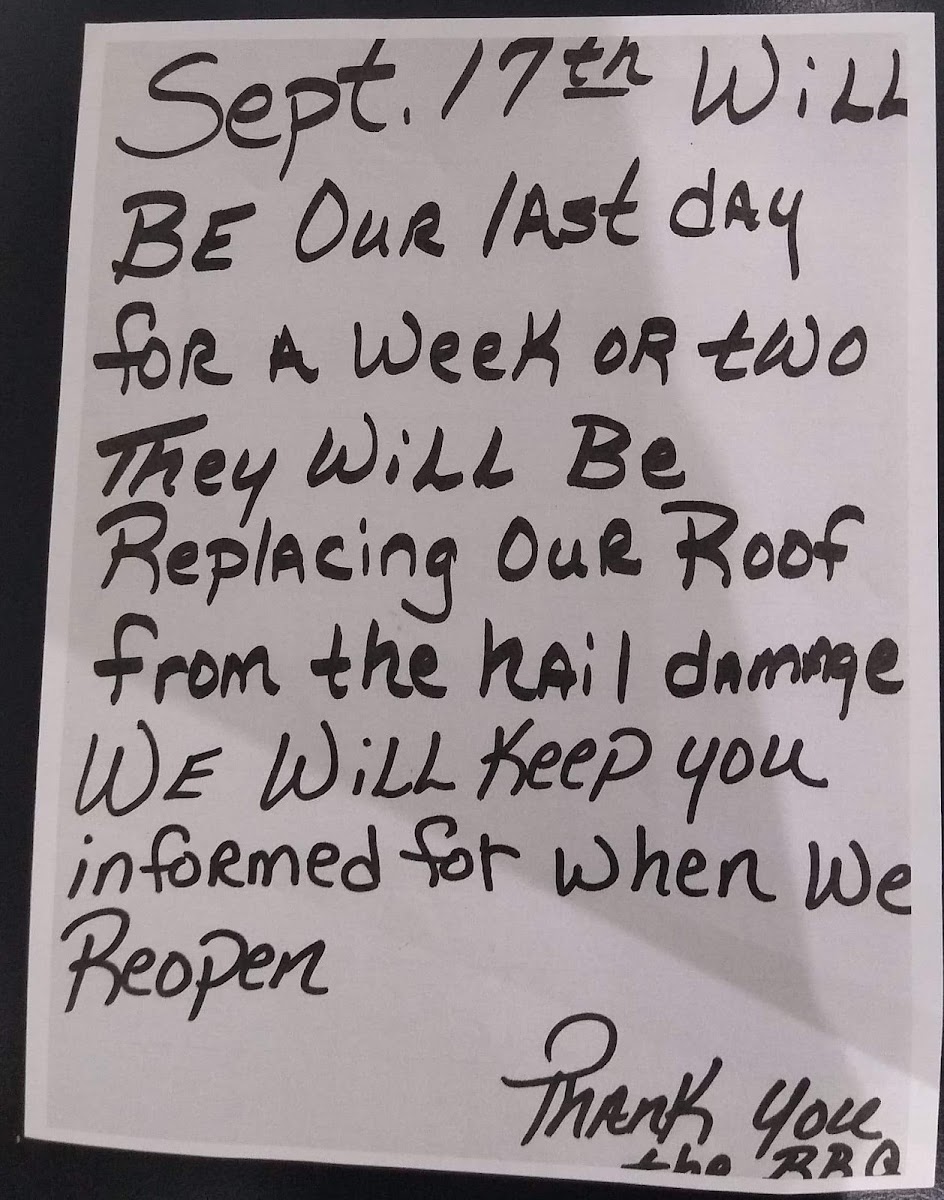 Sept. 17th WiLL
BE OUR lAst dAy
foR A Week oR two
They WiLL Be
ReplAcing ouR Roof
from the hAil dAmAge
WE WiLL Keep you
infoRmed for when We
Reopen
ThAnk you
the BBQ